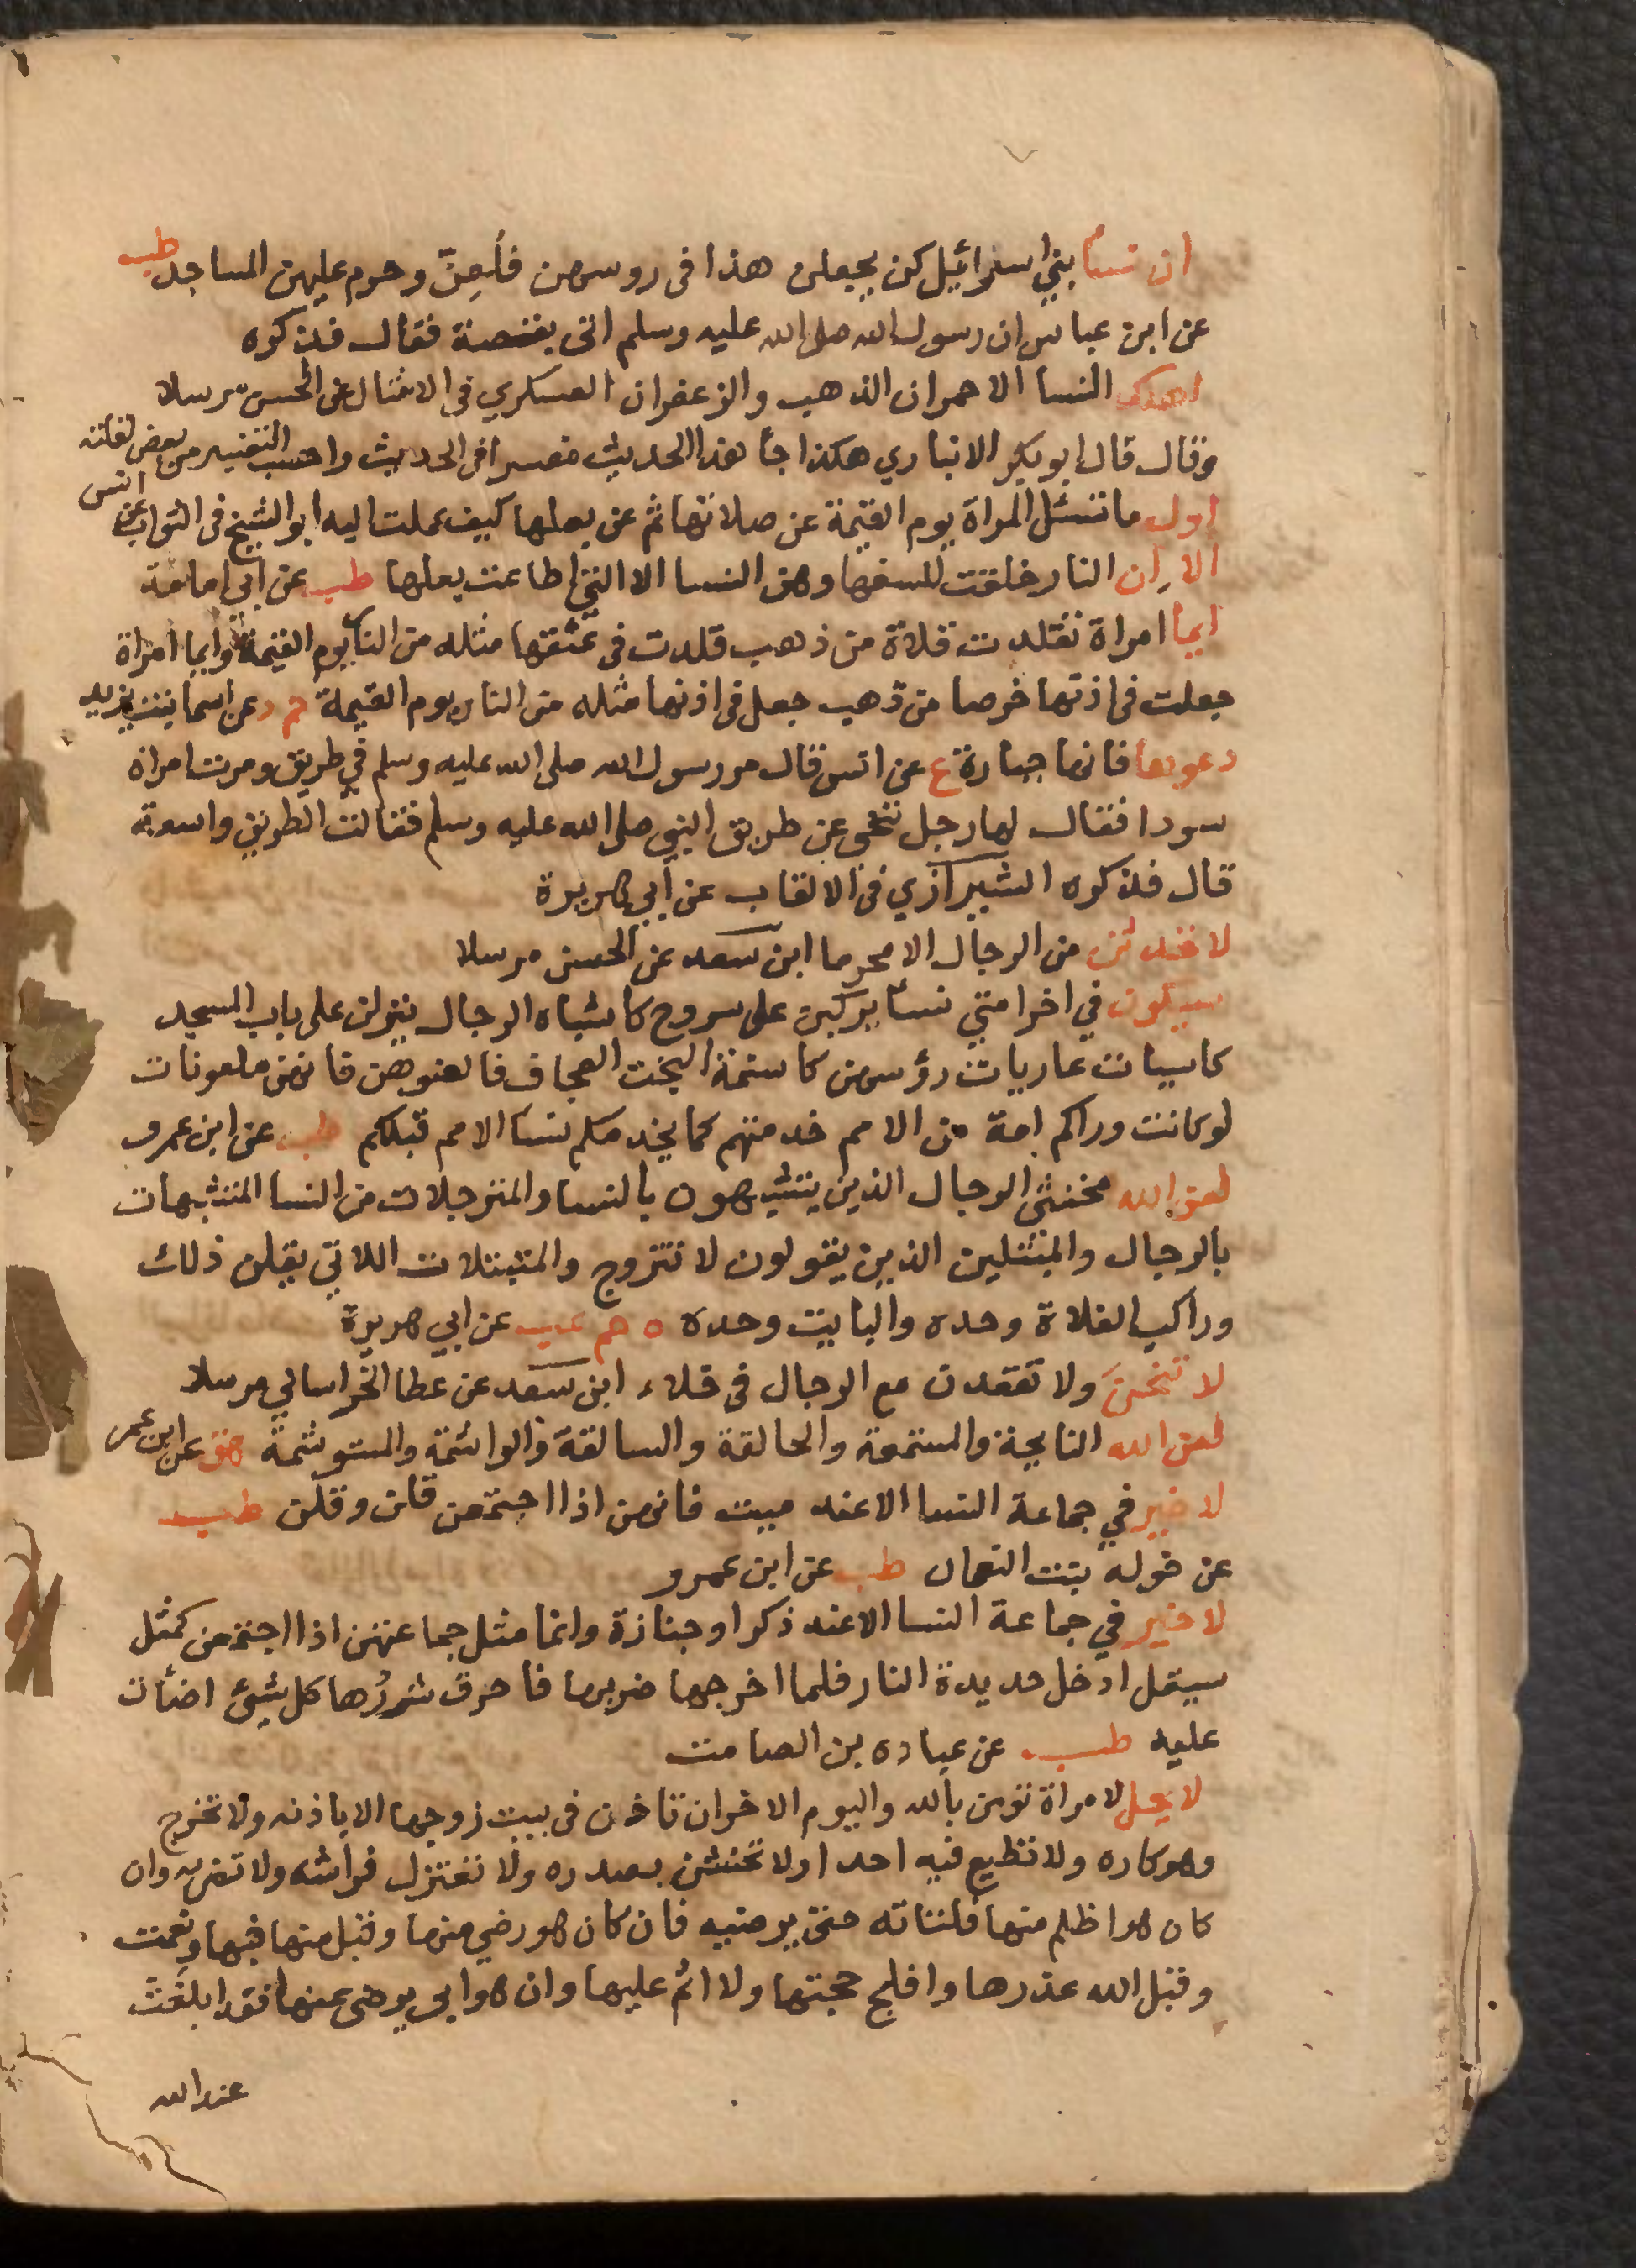 ان نسا بني اسرائيل كن يجعلن هذا فى روسهن فلُعِنّ وحرم عليهن المساجد طب
عن ابن عباس ان رسول الله صلى الله عليه وسلم اتى بقصة فقال فذكره
اهلك النسا الاحمران الذهب والزعفران العسكري في الامثال عن الحسن مرسلا
وقال قال ابو بكر الانباري هكذا جا هذا الحديث مفسرا فى الحديث واحسب التفسير من بعض نقلته
اول ما تسئل المراة يوم القيمة عن صلاتها ثم عن بعلها كيف عملت اليه ابو الشيخ فى الثواب عن انس
الا ان النار خلقت للسفها وهن النسا الا التي اطاعت بعلها طب عن ابي امامة
ايما امراة تقلدت قلادة من ذهب قلدت في عنقها مثله من النار يوم القيمة وايما امراة
جعلت فى اذنها خرصا من ذهب جعل فى اذنها مثله من النار يوم القيمة حم د عن اسما بنت يزيد
دعوها فانها جبارة ع عن انس قال مر رسول الله صلى الله عليه وسلم في طريق ومرت امراة
سودا فقال لها رجل تنحى عن طريق النبي صلى الله عليه وسلم فقالت الطريق واسعة
قال فذكره الشيرازي فى الالقاب عن ابي هريرة
لا تحدثن من الرجال الا محرما ابن سعد عن الحسن مرسلا
سيكون في اخر امتي نسا يركبن على سروج كاشباه الرجال ينزلن على باب المسجد
كاسيات عاريات رؤسهن كاسنمة البخت العجاف فالعنوهن فانهن ملعونات
لو كانت وراكم امة من الامم خدمتهم كما يخدمكم نسا الامم قبلكم طب عن ابن عمرو
لعن الله مخنثي الرجال الذين يتشبهون بالنسا والمترجلات من النسا المتشبهات
بالرجال والمتبتلين الذين يقولون لا نتزوج والمتبتلات اللاتي يقلن ذلك
وراكب الفلاة وحده والبايت وحده ه حم عب عن ابي هريرة
لا تنحن ولا تقعدن مع الرجال فى خلاء ابن سعد عن عطا الخراساني مرسلا
لعن الله النايحة والمستمعة والحالقة والسالقة والواشمة والمستوشمة هق عن ابن عمر
لا خير في جماعة النسا الا عند ميت فانهن اذا اجتمعن قلن وقلن طب
عن خوله بنت النعمان طب عن ابن عمرو
لا خير في جماعة النسا الا عند ذكر او جنازة وانما مثل جماعتهن اذا اجتمعن كمثل
سيقل ادخل حديدة النار فلما اخرجها ضربها فاحرق شررُها كل شئ اضأت
عليه طب عن عباده بن الصامت
لا يحل لامراة تومن بالله واليوم الاخر ان تاذن فى بيت زوجها الا باذنه ولا تخرج
وهو كاره ولا تطيع فيه احدا ولا تخشن بصدره ولا تعتزل فراشه ولا تضربه وان
كان هو اظلم منها فلتاته حتى ترضيه فان كان هو رضي منها وقبل منها فبها ونعمت
وقبل الله عذرها وافلج حجتها ولا اثم عليها وان هو ابي يرضى عنها فقد ابلغت
عند الله